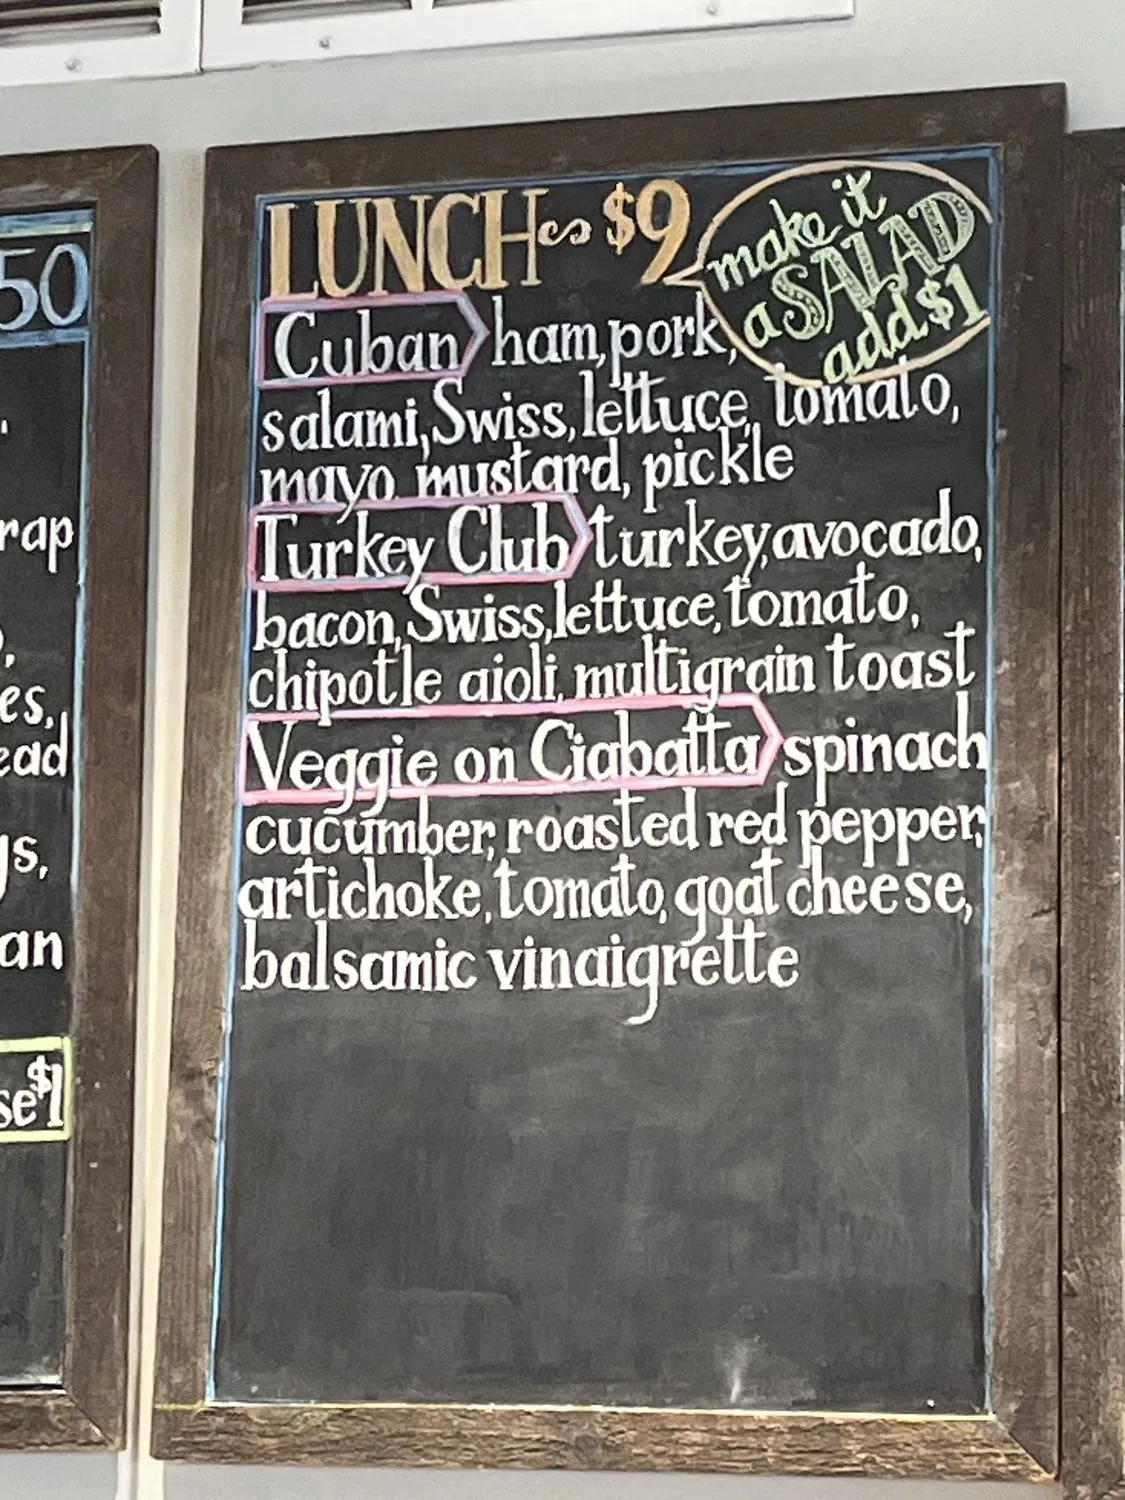 50
rap
es,
ead
an
se $1
LUNCH $9
make it
a SALAD
add $1
Cuban ham, pork,
salami, Swiss, lettuce, tomato,
mayo, mustard, pickle
Turkey Club turkey, avocado,
bacon, Swiss, lettuce, tomato,
chipotle aioli, multigrain toast
Veggie on Ciabatta spinach
cucumber, roasted red pepper,
artichoke, tomato, goat cheese,
balsamic vinaigrette